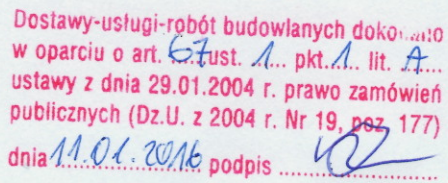 Dostawy-usługi-robót budowlanych dokonano
w oparciu o art. 67 ust. 1 pkt. 1 lit. A
ustawy z dnia 29.01.2004 r. prawo zamówień
publicznych (Dz.U. z 2004 r. Nr 19, poz. 177)
dnia 11.01.2016 podpis